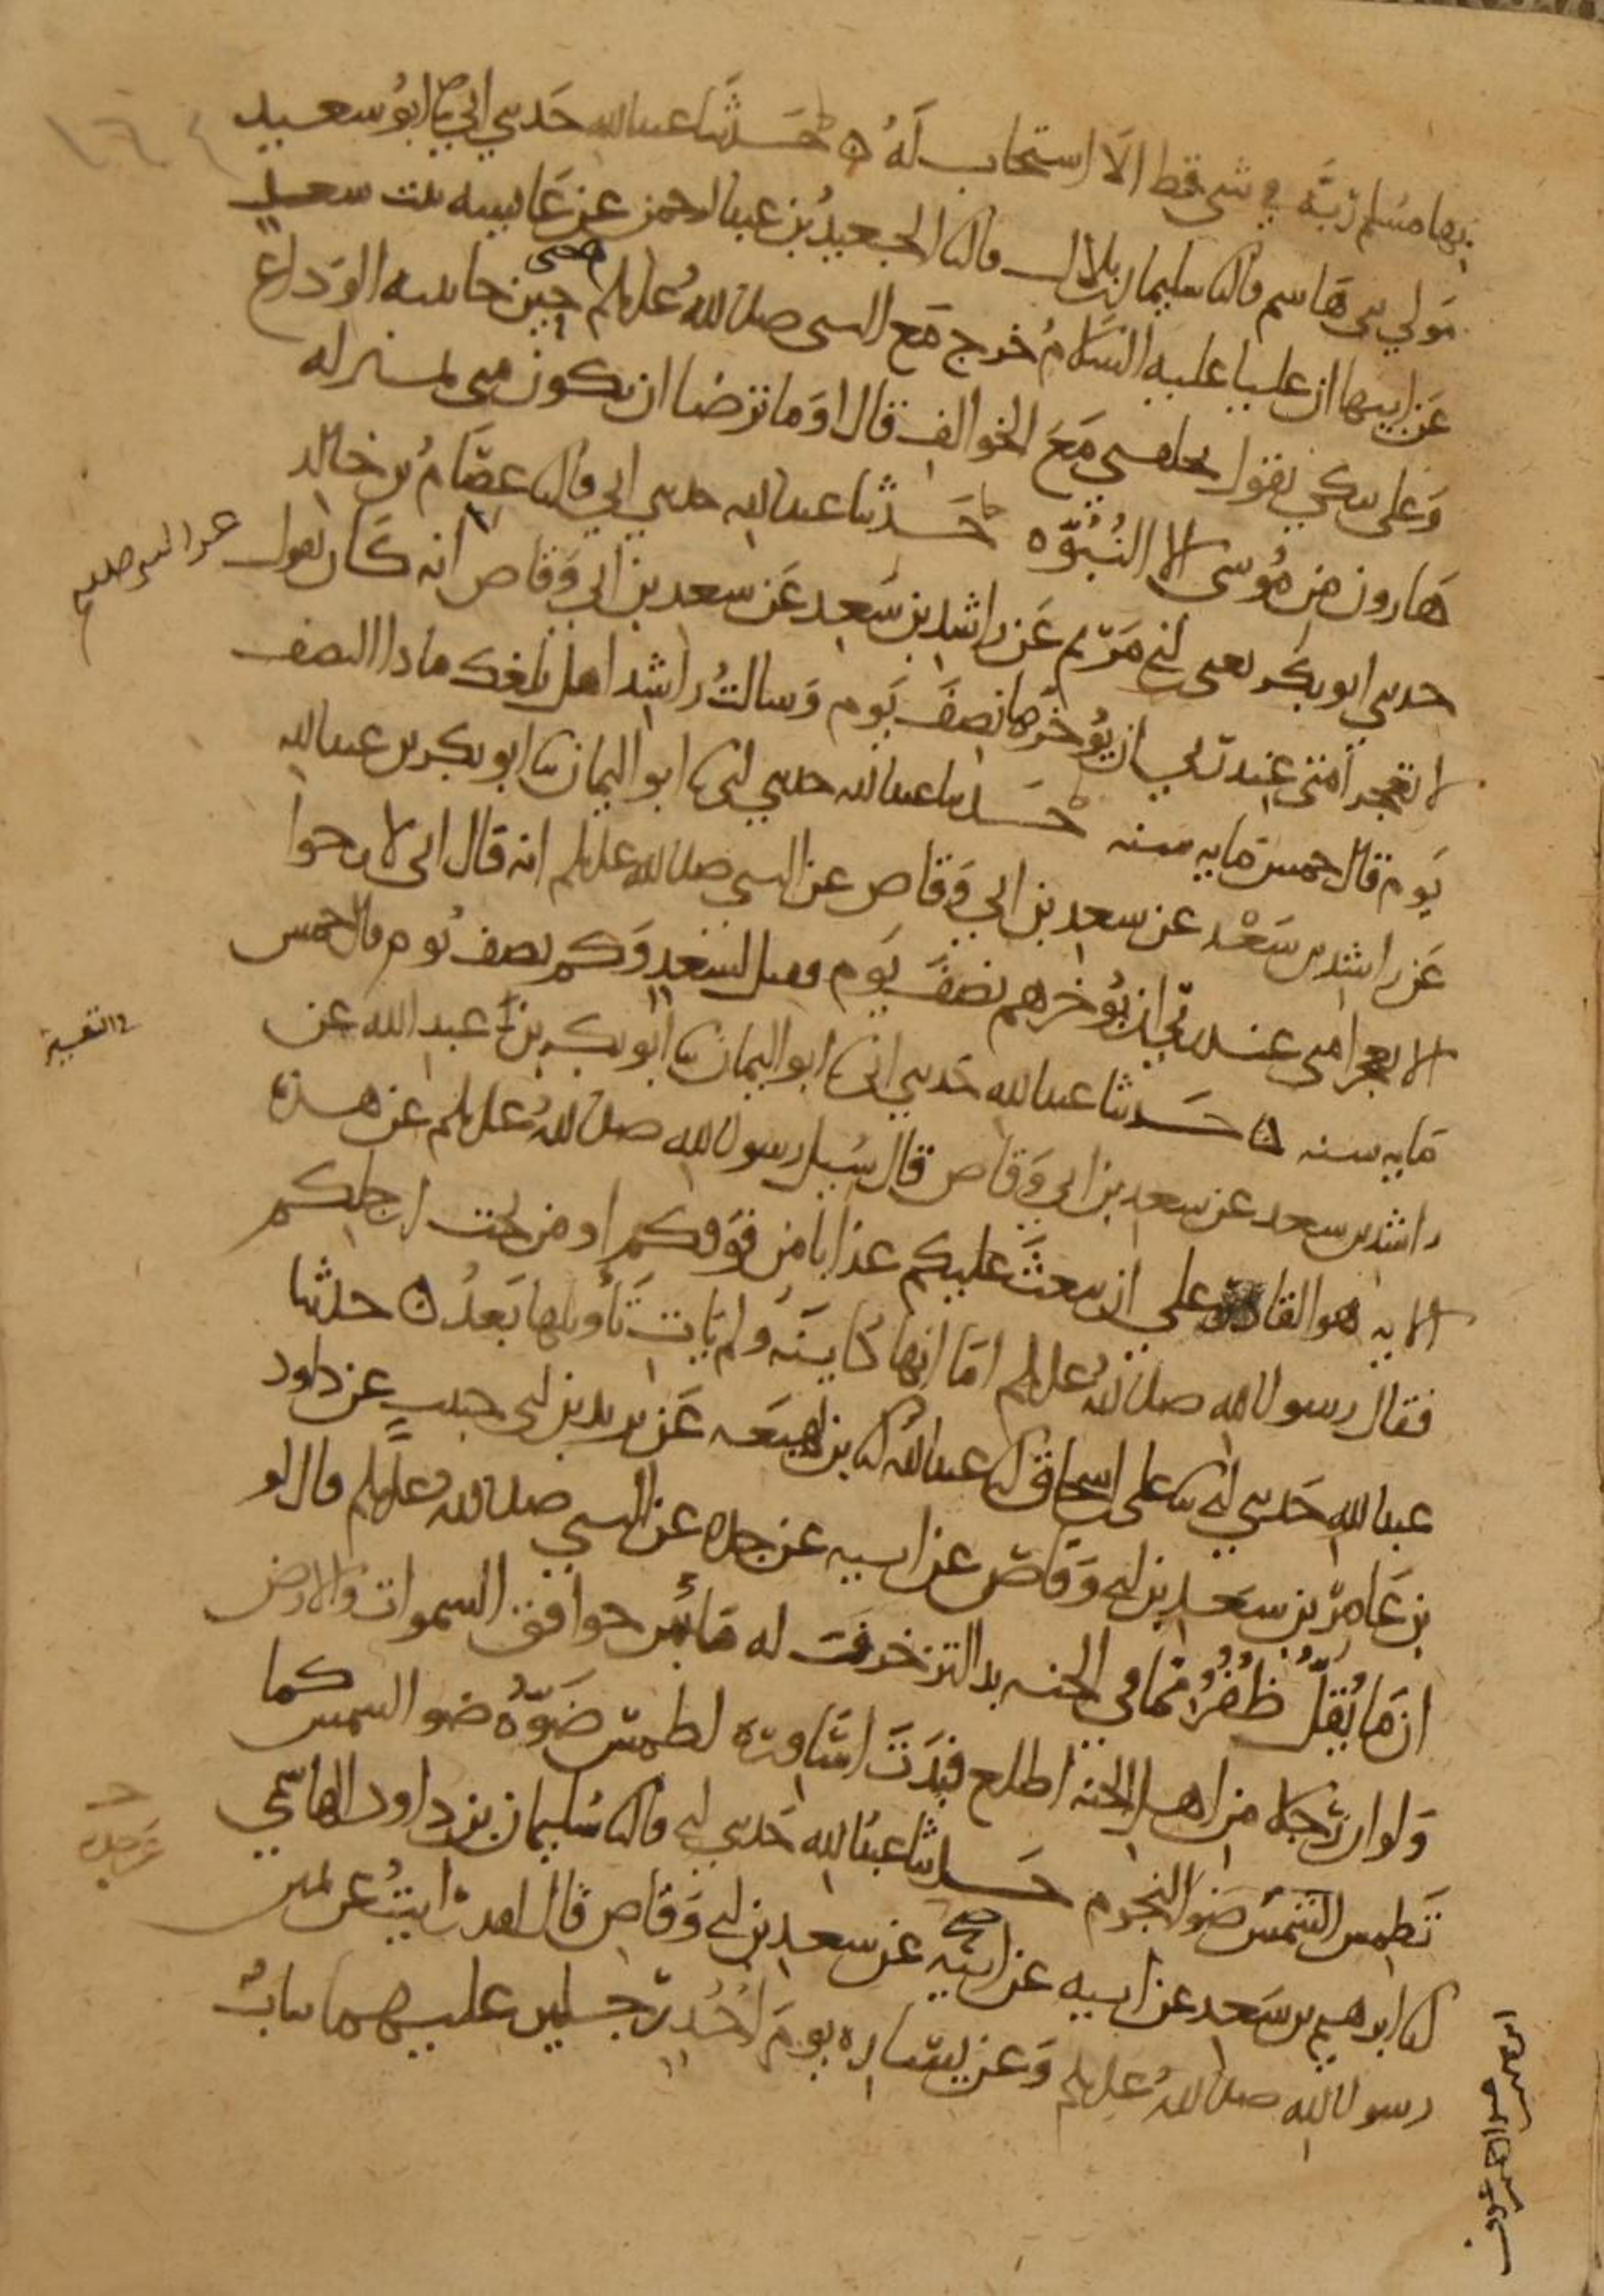 بها مسلم ربه في شي قط الا استجاب له ه حدثنا عبدالله حدثني ابي ثنا ابو سعيد
مولي بني هاشم قال ثنا سليمان بن بلال قال ثنا الجعيد بن عبدالرحمن عن عايشه بنت سعد
عن ابيها ان عليا عليه السلام خرج مع النبي صلى الله عليه وسلم حين جا ثنيه الوداع
وعلي يبكي يقول تخلفني مع الخوالف فقال او ما ترضا ان تكون مني بمنزله
هارون من موسى الا النبوه حدثنا عبدالله حدثني ابي قال ثنا عصام بن خالد
حدثني ابو بكر يعني ابن ابي مريم عن راشد بن سعد عن سعد بن ابي وقاص انه كان يقول
عن النبي صلعم
لا تعجز امتي عند ربي ان يؤخرها نصف يوم وسالت راشدا هل بلغك ماذا النصف
يوم قال خمس مايه سنه حدثنا عبدالله حدثني ابي ثنا ابو اليمان ثنا ابو بكر بن عبدالله
عن راشد بن سعد عن سعد بن ابي وقاص عن النبي صلى الله عليه وسلم انه قال اني لارجوا
الا يعجز امتي عند ربي ان يؤخرهم نصف يوم فقيل لسعد وكم نصف يوم قال خمس
مايه سنه ه حدثنا عبدالله حدثني ابي ثنا ابو اليمان ثنا ابو بكر بن عبد الله عن
راشد بن سعد عن سعد بن ابي وقاص قال سيل رسول الله صلى الله عليه وسلم عن هذه
الايه هو القادر على ان يبعث عليكم عذابا من فوقكم او من تحت ارجلكم
فقال رسول الله صلى الله عليه وسلم اما انها كاينه ولم يات تأويلها بعد ه حدثنا
عبدالله حدثني ابي ثنا علي بن اسحاق انا عبدالله انا بن لهيعه عن يزيد بن ابي حبيب عن داود
بن عامر بن سعد بن ابي وقاص عن ابيه عن جده عن النبي صلى الله عليه وسلم قال لو
ان ما يقل ظفر مما في الجنه بدا لتزخرفت له ما بين خوافق السموات والارض
ولو ان رجلا من اهل الجنه اطلع فبدت اساوره لطمس ضوءه ضو الشمس كما
تطمس الشمس ضو النجوم حدثنا عبدالله حدثني ابي قال ثنا سليمان بن داود الهاشمي
انا ابرهيم بن سعد عن ابيه عن ابيه عن سعد بن ابي وقاص قال لقد رايت عن يمين
رسول الله صلى الله عليه وسلم وعن يساره يوم احد رجلين عليهما ثياب